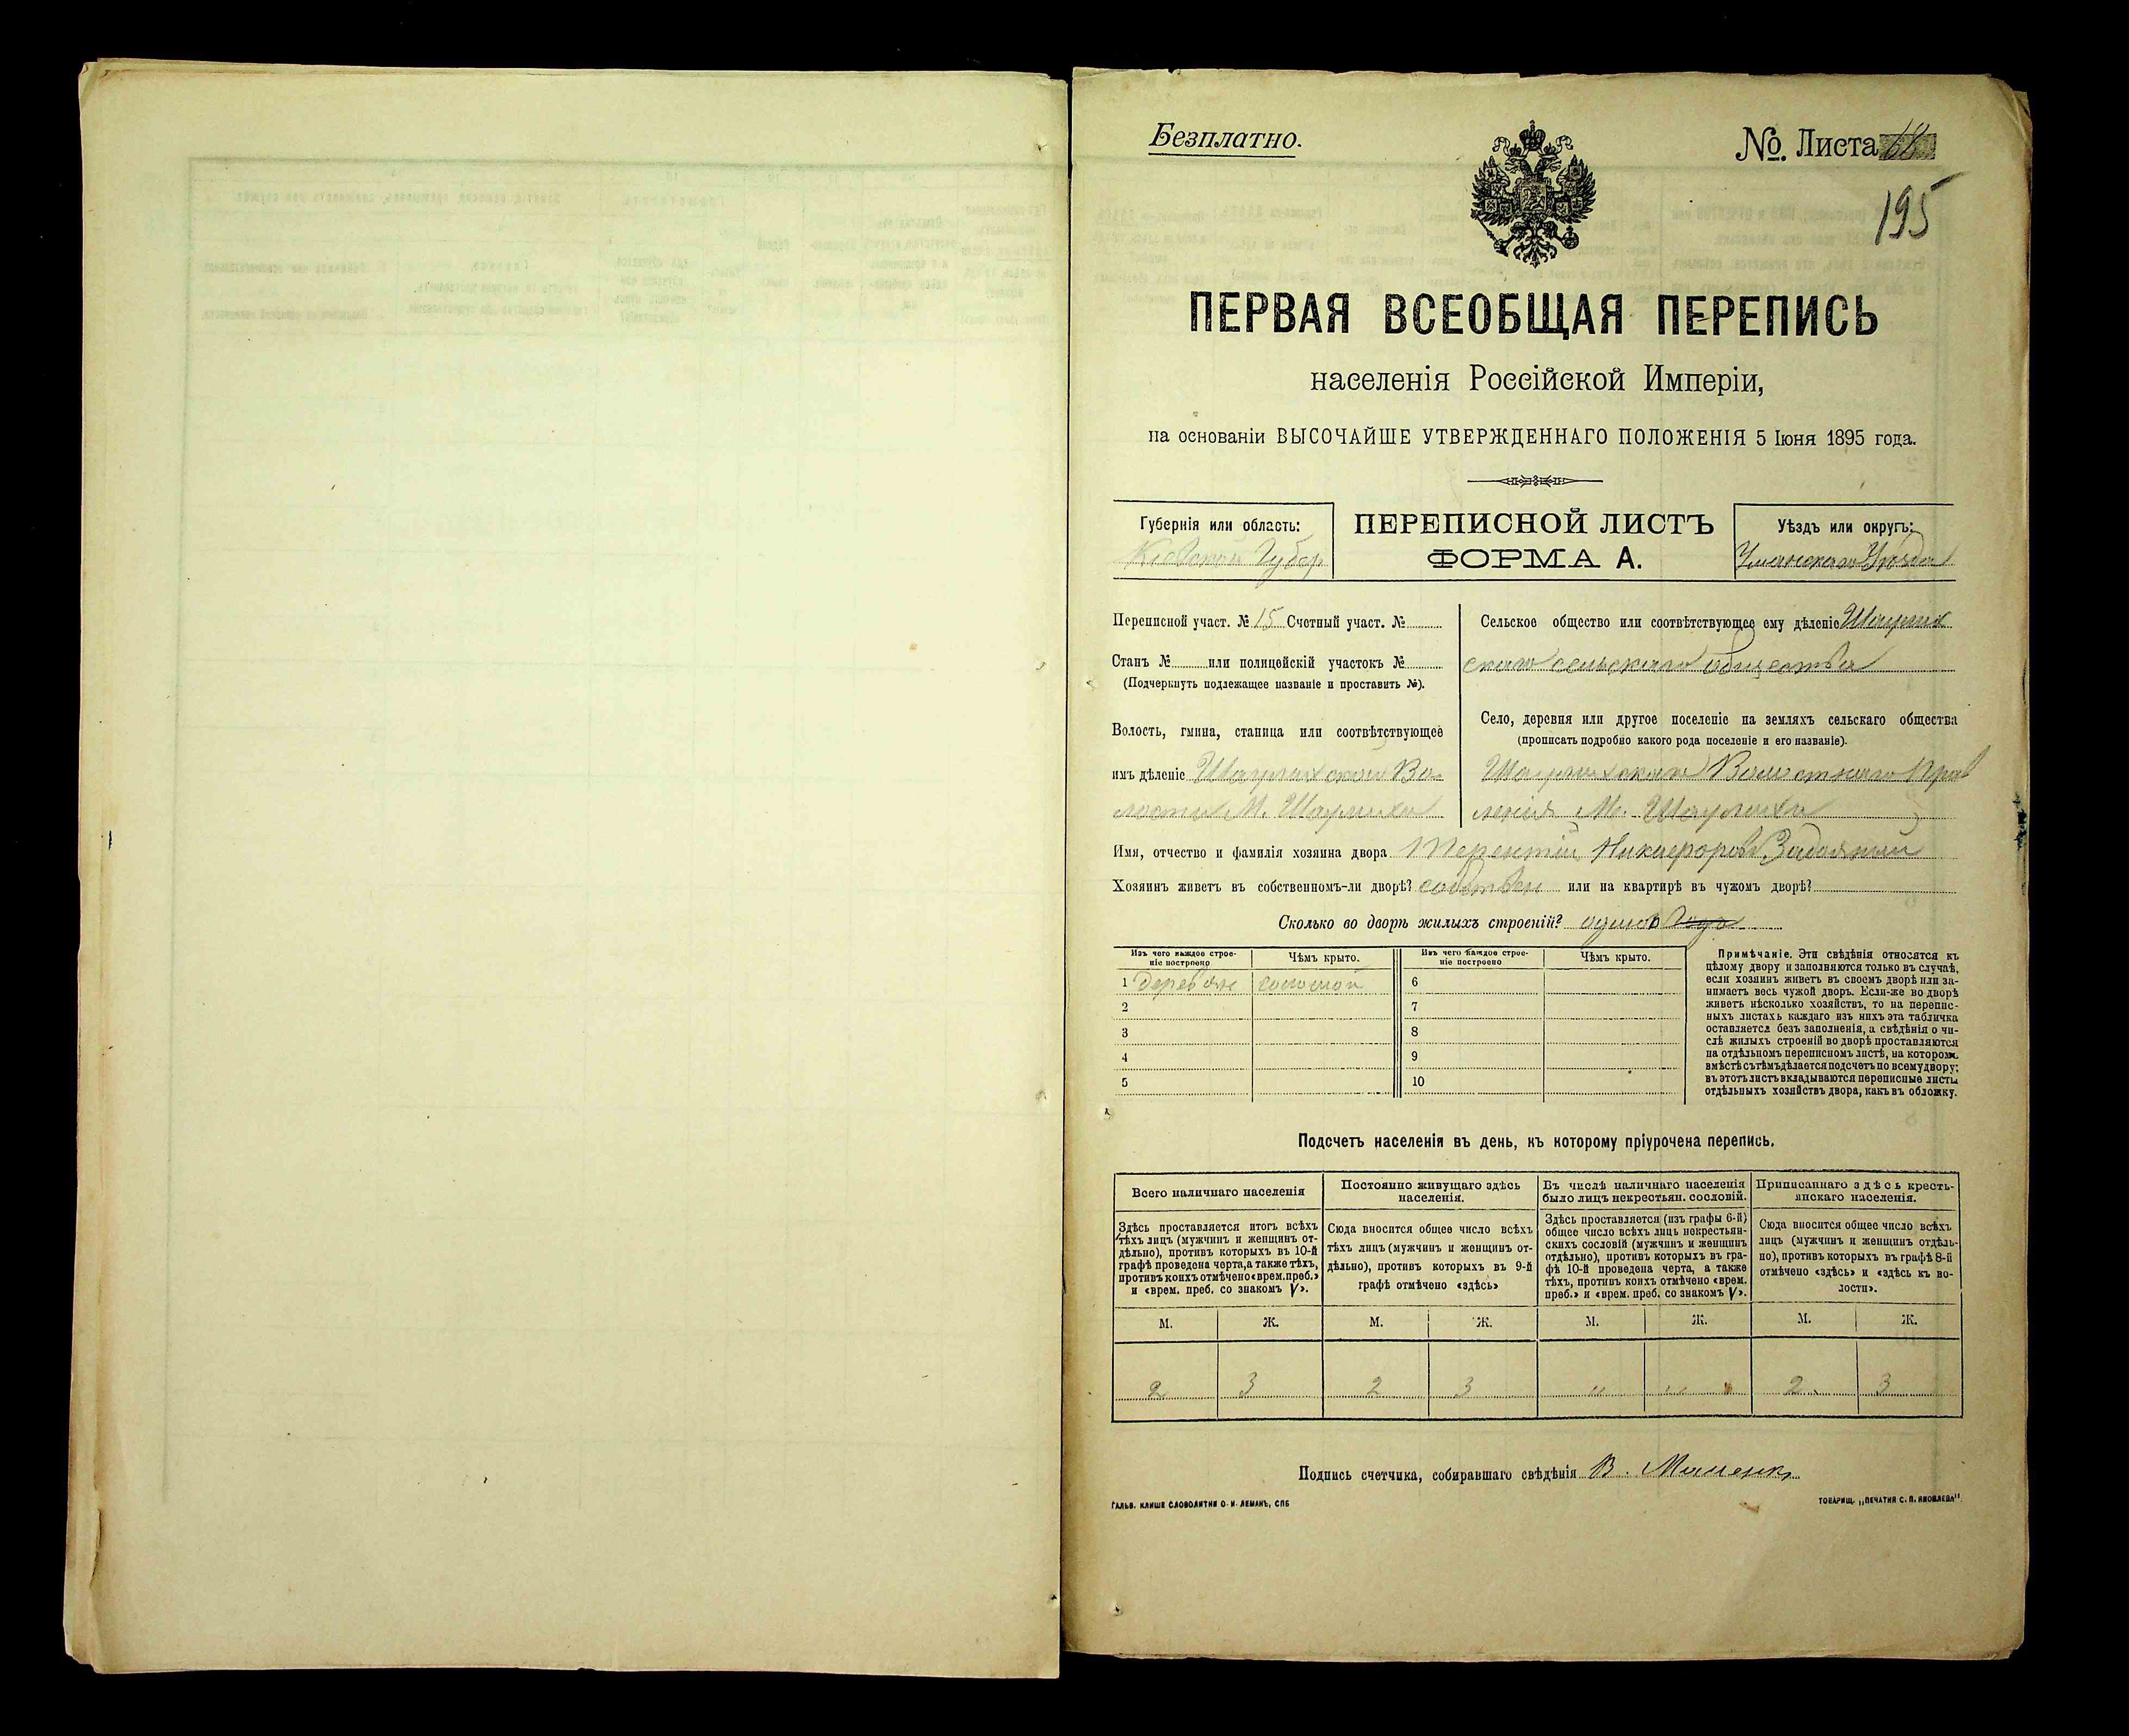 Безплатно.
№ Листа 68
195
ПЕРВАЯ ВСЕОБЩАЯ ПЕРЕПИСЬ
населенія Россійской Имперіи,
на основаніи ВЫСОЧАЙШЕ УТВЕРЖДЕННАГО ПОЛОЖЕНІЯ 5 Іюня 1895 года.
Губернія или область:
Кіевской Губер
ПЕРЕПИСНОЙ ЛИСТЪ
ФОРМА А.
Уѣздъ или округъ:
Уманскаго Уѣзда
Переписной участ. № 15 Счетный участ. №
Станъ № или полицейскій участокъ №
(Подчеркнуть подлежащее названіе и проставить №).
Волость, гмина, станица или соотвѣтствующее
имъ дѣленіе Шаулихской Во
лости М. Шаулиха
Сельское общество или соотвѣтствующее ему дѣленіе Шаулих
скаго сельскаго общества
Село, деревня или другое поселеніе на земляхъ сельскаго общества
(прописать подробно какого рода поселеніе и его названіе).
Шаулихскаго Волостнаго Прав
ленія М. Шаулиха
Имя, отчество и фамилія хозяина двора Терентій Никифоровъ
Хозяинъ живетъ въ собственномъ-ли дворѣ? собствен или на квартирѣ въ чужомъ дворѣ?
Сколько во дворѣ жилыхъ строеній? одно
Изъ чего каждое строе-
ніе построено
Чѣмъ крыто.
Изъ чего каждое строе-
ніе построено
Чѣмъ крыто.
1 деревяне соломой
2
3
4
5
6
7
8
9
10
Примѣчаніе. Эти свѣдѣнія относятся къ
цѣлому двору и заполняются только въ случаѣ,
если хозяинъ живетъ въ своемъ дворѣ или за-
нимаетъ весь чужой дворъ. Если-же во дворѣ
живетъ нѣсколько хозяйствъ, то на перепис-
ныхъ листахъ каждаго изъ нихъ эта табличка
оставляется безъ заполненія, а свѣдѣнія о чи-
слѣ жилыхъ строеній во дворѣ проставляются
на отдѣльномъ переписномъ листѣ, на которомъ
вмѣстѣ съ тѣмъ дѣлается подсчетъ по всему двору;
въ этотъ листъ вкладываются переписные листы
отдѣльныхъ хозяйствъ двора, какъ въ обложку.
Подсчетъ населенія въ день, къ которому пріурочена перепись.
Всего наличнаго населенія
Здѣсь проставляется итогъ всѣхъ
тѣхъ лицъ (мужчинъ и женщинъ от-
дѣльно), противъ которыхъ въ 10-й
графѣ проведена черта, а также тѣхъ,
противъ коихъ отмѣчено «врем. преб.»
и «врем. преб. со знакомъ V».
Постоянно живущаго здѣсь
населенія.
Сюда вносится общее число всѣхъ
тѣхъ лицъ (мужчинъ и женщинъ от-
дѣльно), противъ которыхъ въ 9-й
графѣ отмѣчено «здѣсь»
Въ числѣ наличнаго населенія
было лицъ некрестьян. сословій.
Здѣсь проставляется (изъ графы 6-й)
общее число всѣхъ лицъ некрестьян-
скихъ сословій (мужчинъ и женщинъ
отдѣльно), противъ которыхъ въ гра-
фѣ 10-й проведена черта, а также
тѣхъ, противъ коихъ отмѣчено «врем.
преб.» и «врем. преб. со знакомъ V».
Приписаннаго здѣсь кресть-
янскаго населенія.
Сюда вносится общее число всѣхъ
лицъ (мужчинъ и женщинъ отдѣль-
но), противъ которыхъ въ графѣ 8-й
отмѣчено «здѣсь» и «здѣсь къ во-
лости».
М. Ж. М. Ж. М. Ж. М. Ж.
2 3 2 3 " " 2 3
Подпись счетчика, собиравшаго свѣдѣнія В.
ГАЛЬВ. КЛИШЕ СЛОВОЛИТНИ О. И. ЛЕМАНЪ, СПБ
ТОВАРИЩ. „ПЕЧАТНЯ С. П. ЯКОВЛЕВА".